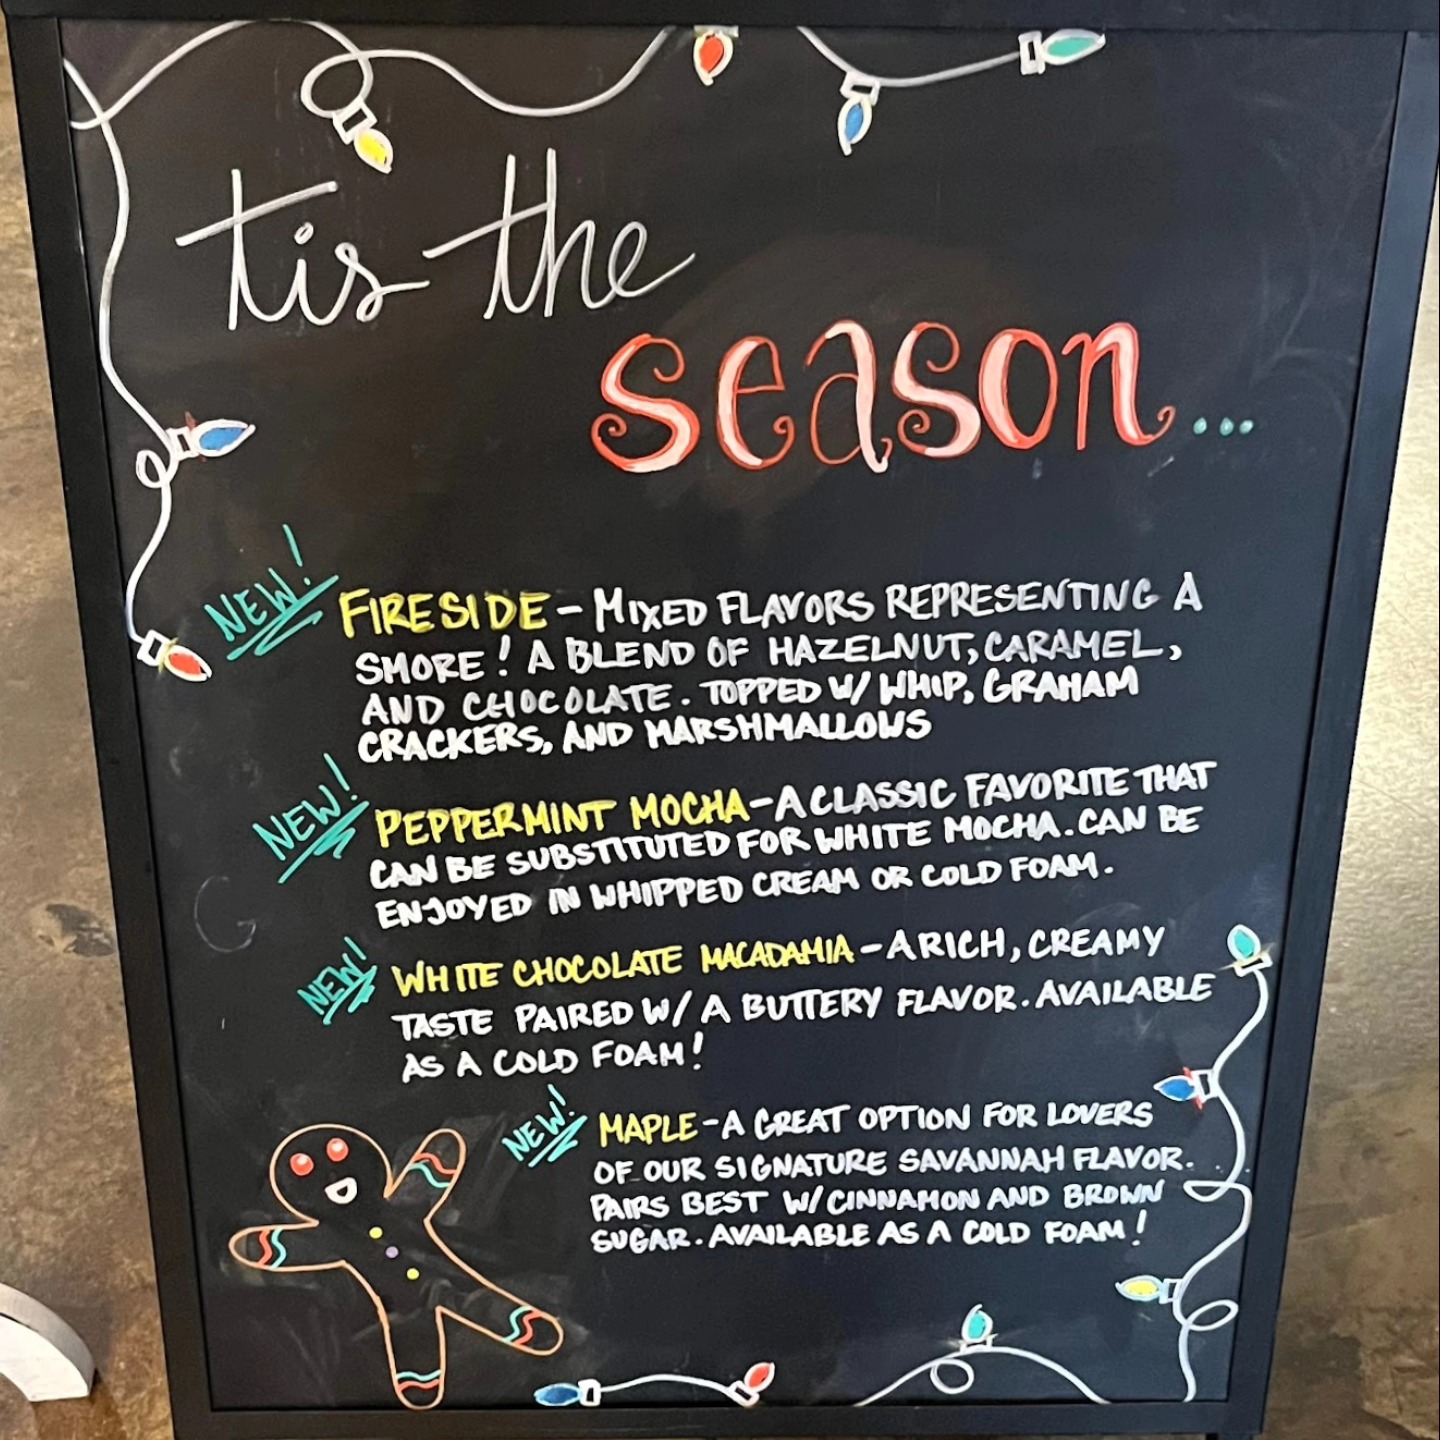 tis the
season...
NEW! FIRESIDE - MIXED FLAVORS REPRESENTING A
SMORE! A BLEND OF HAZELNUT, CARAMEL,
AND CHOCOLATE. TOPPED W/ WHIP, GRAHAM
CRACKERS, AND MARSHMALLOWS
NEW! PEPPERMINT MOCHA - A CLASSIC FAVORITE THAT
CAN BE SUBSTITUTED FOR WHITE MOCHA. CAN BE
ENJOYED IN WHIPPED CREAM OR COLD FOAM.
NEW! WHITE CHOCOLATE MACADAMIA - A RICH, CREAMY
TASTE PAIRED W/ A BUTTERY FLAVOR. AVAILABLE
AS A COLD FOAM!
NEW! MAPLE - A GREAT OPTION FOR LOVERS
OF OUR SIGNATURE SAVANNAH FLAVOR.
PAIRS BEST W/ CINNAMON AND BROWN
SUGAR. AVAILABLE AS A COLD FOAM!